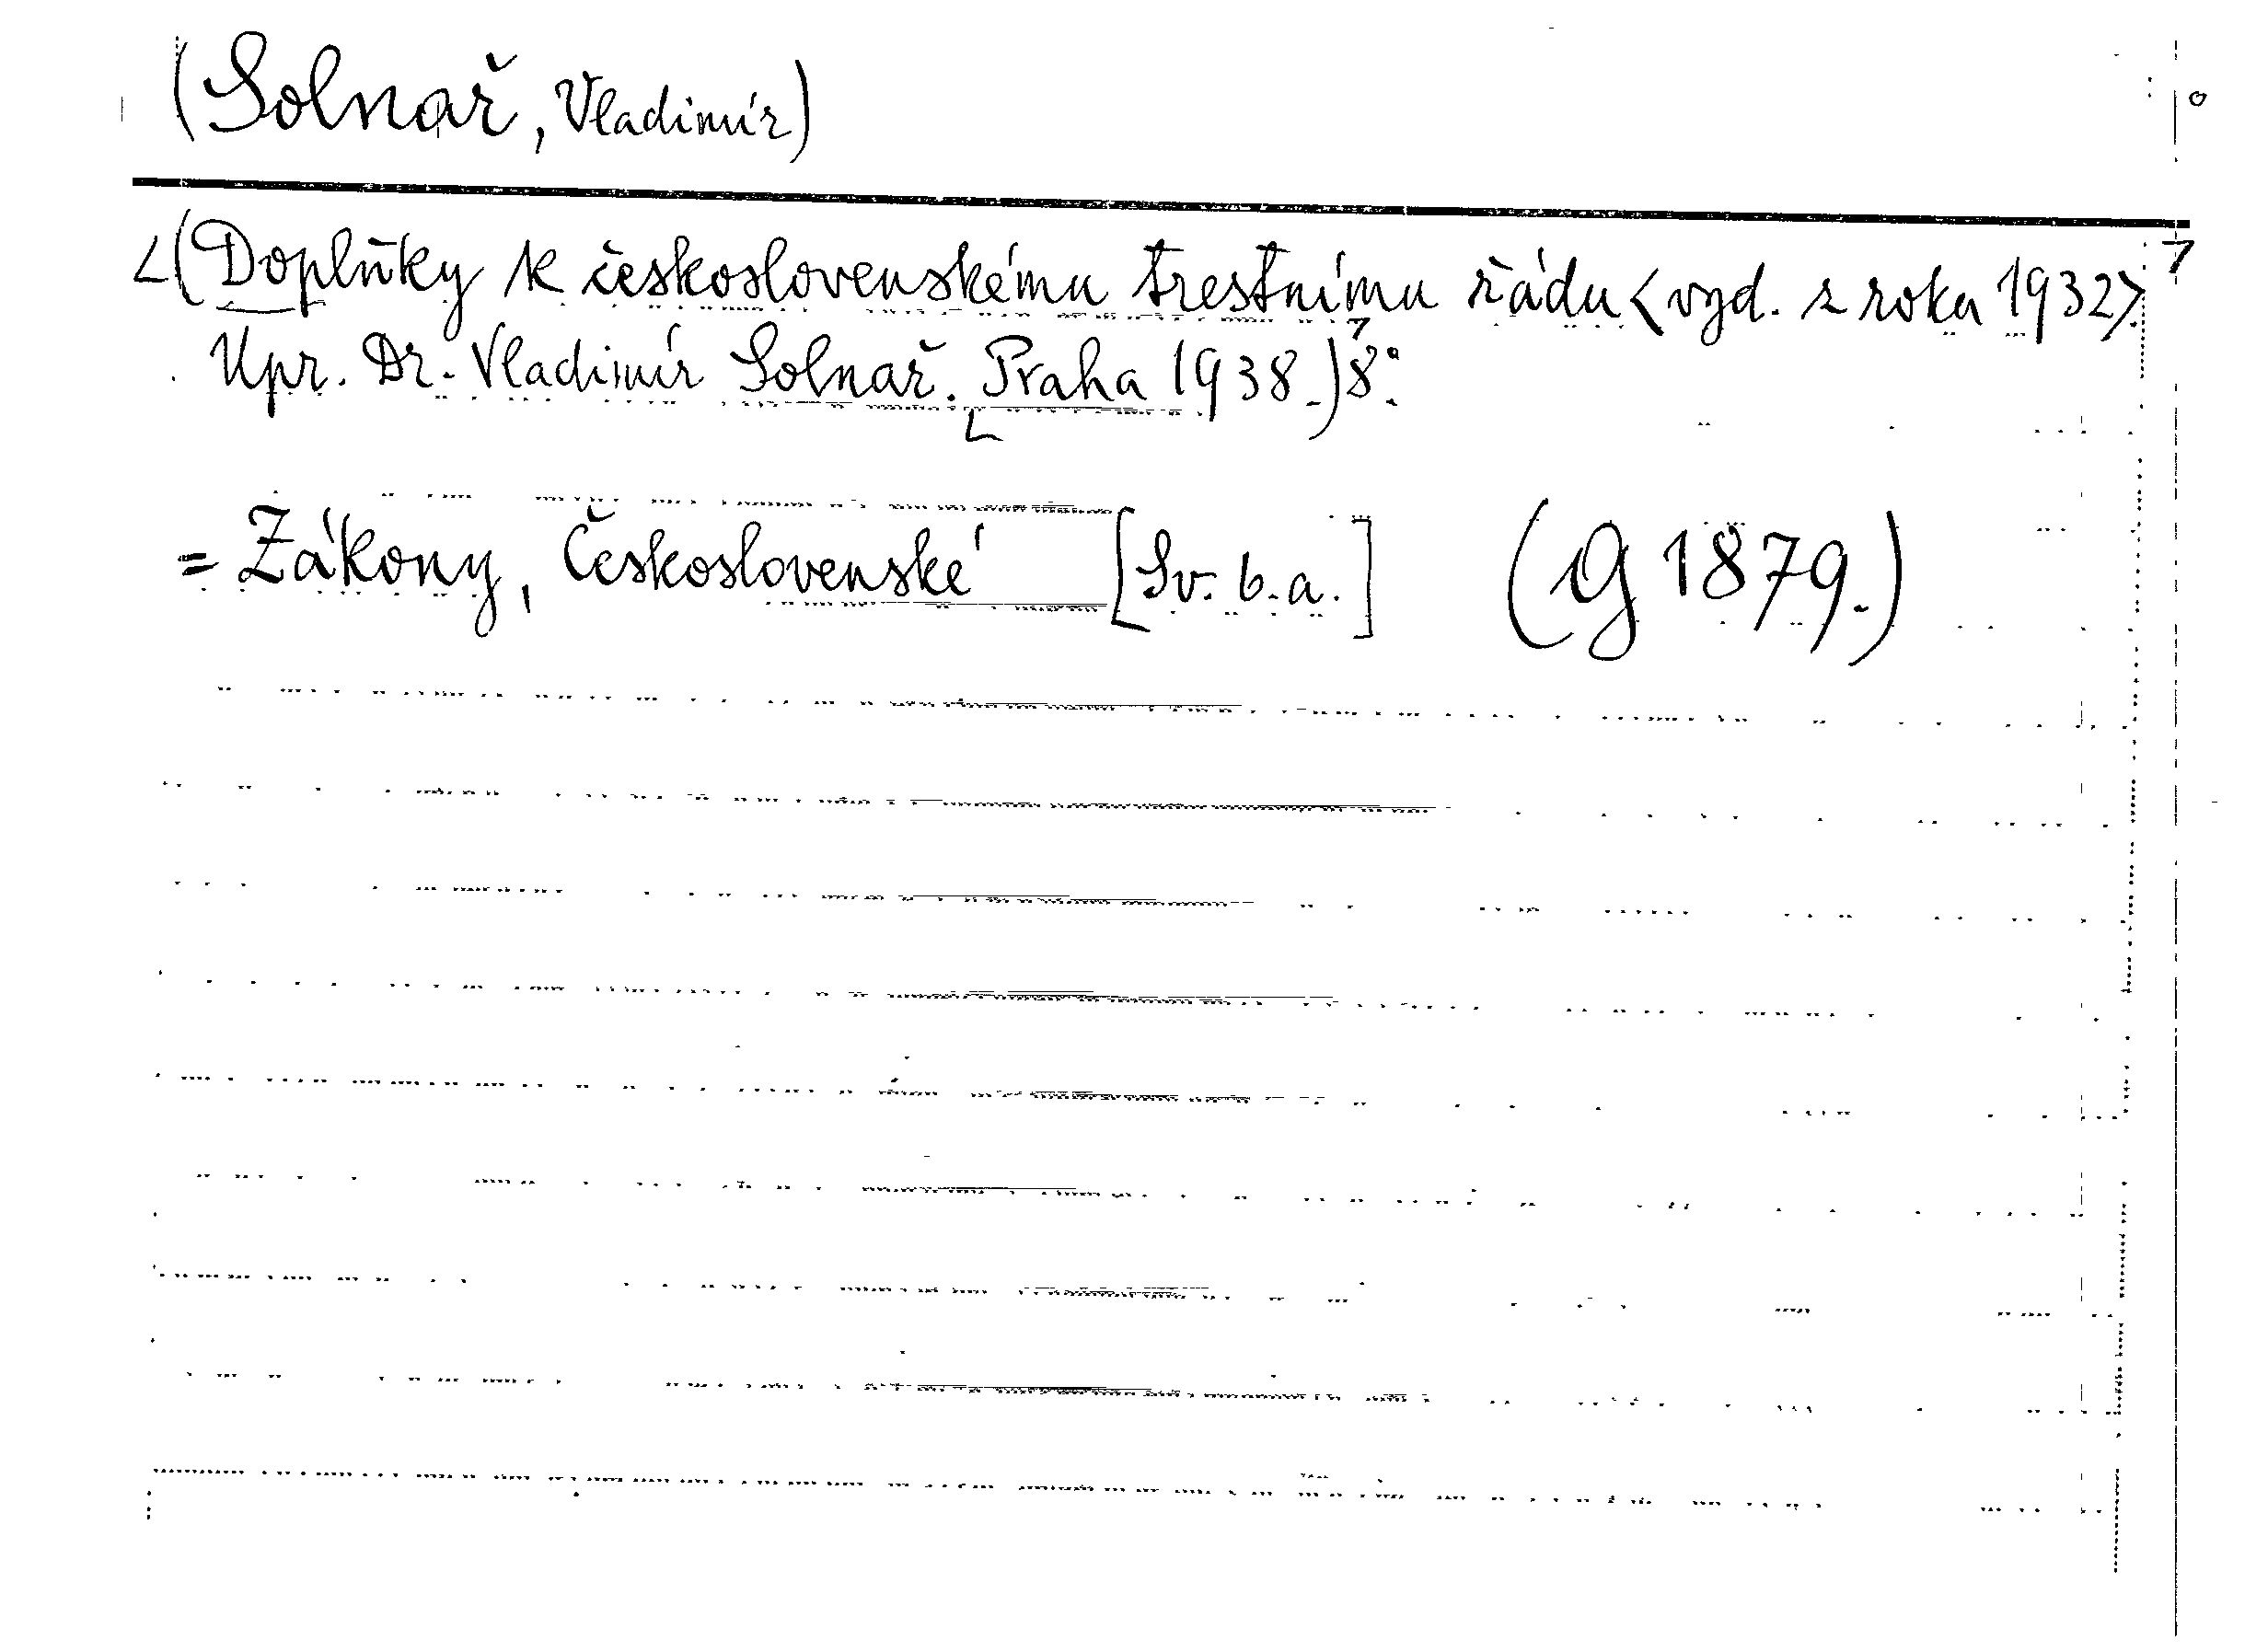 (Solnař, Vladimír)
(Doplňky k československému trestnímu řádu <vyd. z roku 1932>.
Upr. Dr. Vladimír Solnař. Praha 1938.) 8°.
= Zákony, Československé [Sv. 6.a.] (G 1879.)